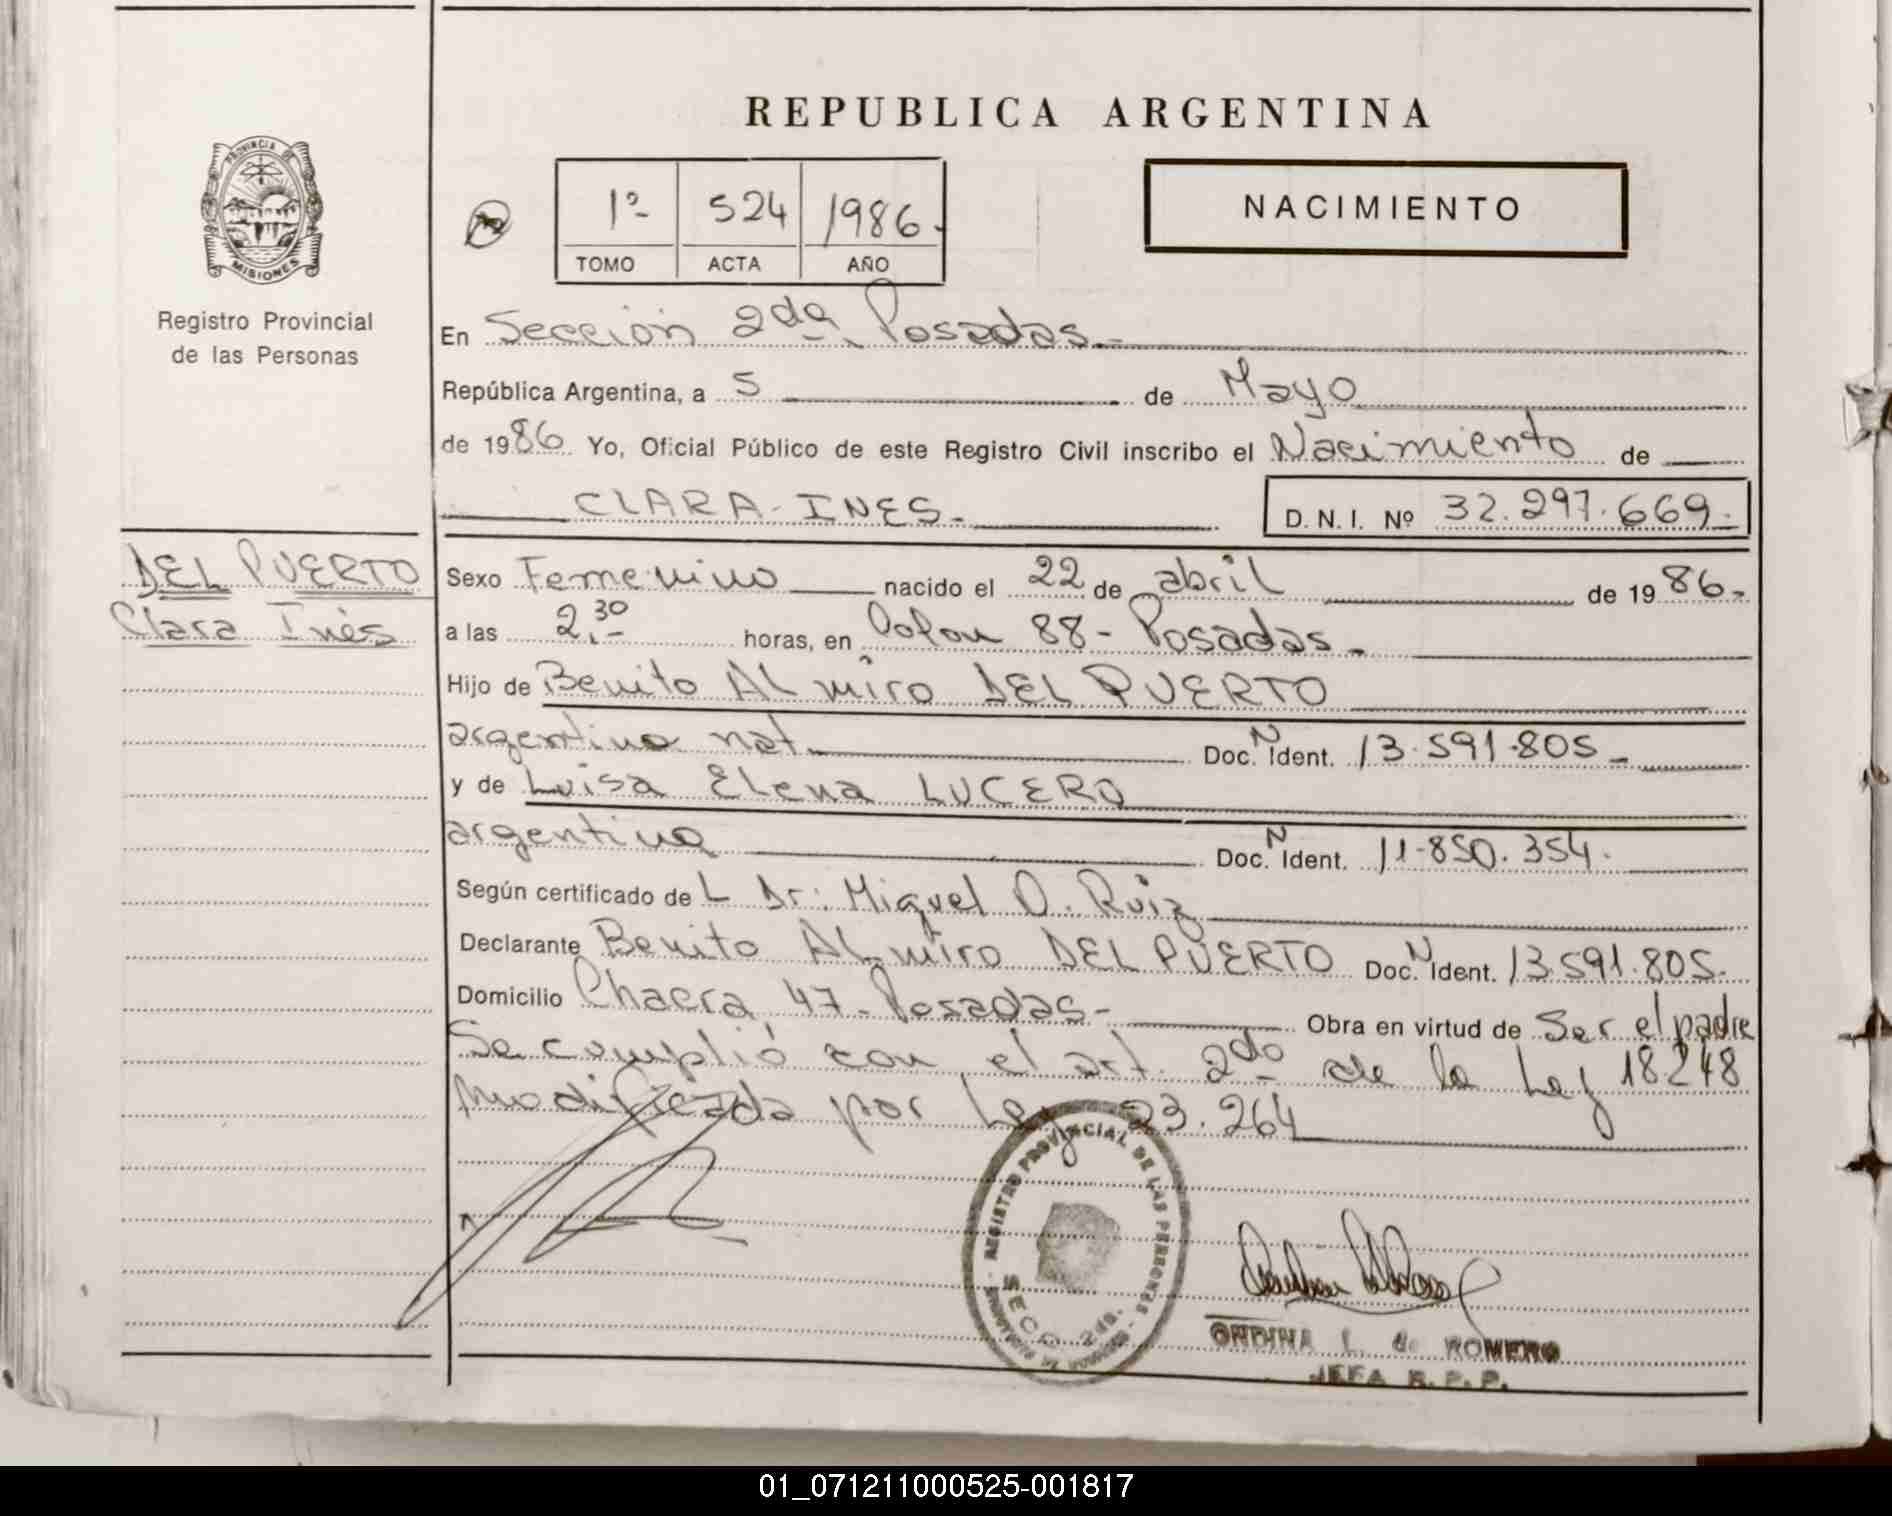 REPUBLICA ARGENTINA
PROVINCIA DE
MISIONES
Registro Provincial
de las Personas
1º- 524 1986.-
TOMO ACTA AÑO
NACIMIENTO
En Sección 2da. Posadas.-
República Argentina, a 5 de Mayo
de 1986. Yo, Oficial Público de este Registro Civil inscribo el Nacimiento de
CLARA-INES.-
D.N.I. Nº 32.297.669.-
DEL PUERTO
Clara Inés
Sexo Femenino nacido el 22 de abril de 1986.-
a las 2,30 horas, en Colon 88- Posadas.-
Hijo de Benito ALmiro DEL PUERTO
argentino nat. Doc. N Ident. 13.591.805.-
y de Luisa ELena LUCERO
argentina Doc. N Ident. 11.850.354.
Según certificado de L Dr: Miguel O. Ruiz
Declarante Benito ALmiro DEL PUERTO Doc. N Ident. 13.591.805.
Domicilio Chacra 47- Posadas- Obra en virtud de Ser el padre
Se cumplió con el art. 2do de la Ley 18248
modificada por Ley 23.264
REGISTRO PROVINCIAL DE LAS PERSONAS
SECC. 2da.
ONDINA L. de ROMERO
JEFA R.P.P.
01_071211000525-001817